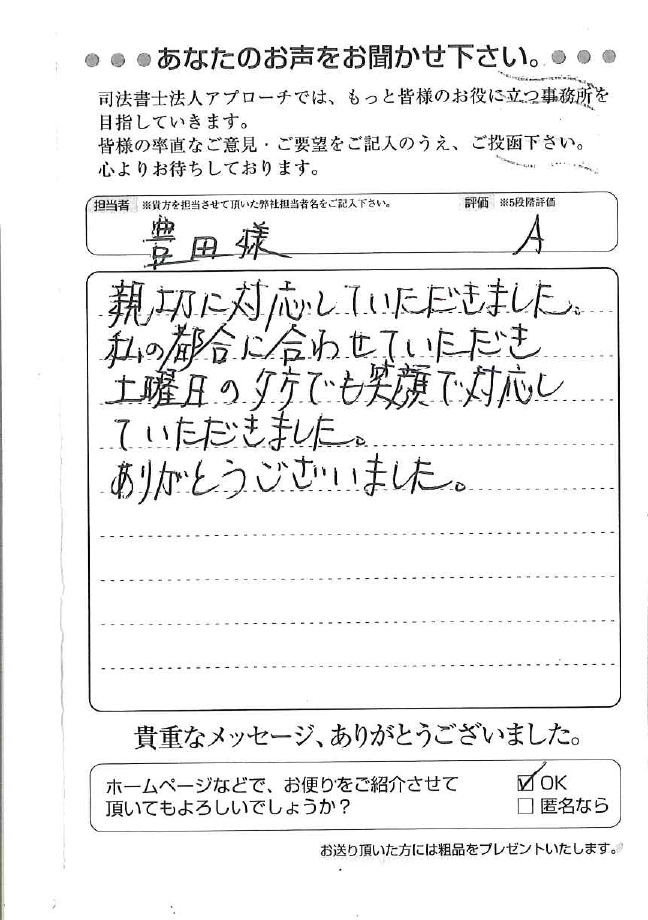 ●●●あなたのお声をお聞かせ下さい。●●●
司法書士法人アプローチでは、もっと皆様のお役に立つ事務所を
目指していきます。
皆様の率直なご意見・ご要望をご記入のうえ、ご投函下さい。
心よりお待ちしております。
担当者 ※貴方を担当させて頂いた弊社担当者名をご記入下さい。 評価 ※5段階評価
豊田様 A
親切に対応していただきました。
私の都合に合わせていただき
土曜日の夕方でも笑顔で対応し
ていただきました。
ありがとうございました。
貴重なメッセージ、ありがとうございました。
ホームページなどで、お便りをご紹介させて ☑ OK
頂いてもよろしいでしょうか？ □ 匿名なら
お送り頂いた方には粗品をプレゼントいたします。